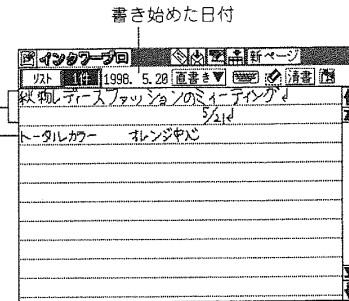 書き始めた日付
インクワープロ 新ページ
リスト 1件 1998. 5.20 直書き▼ 清書
秋物レディースファッションのミーティング↲
5/21↲
トータルカラー オレンジ中心